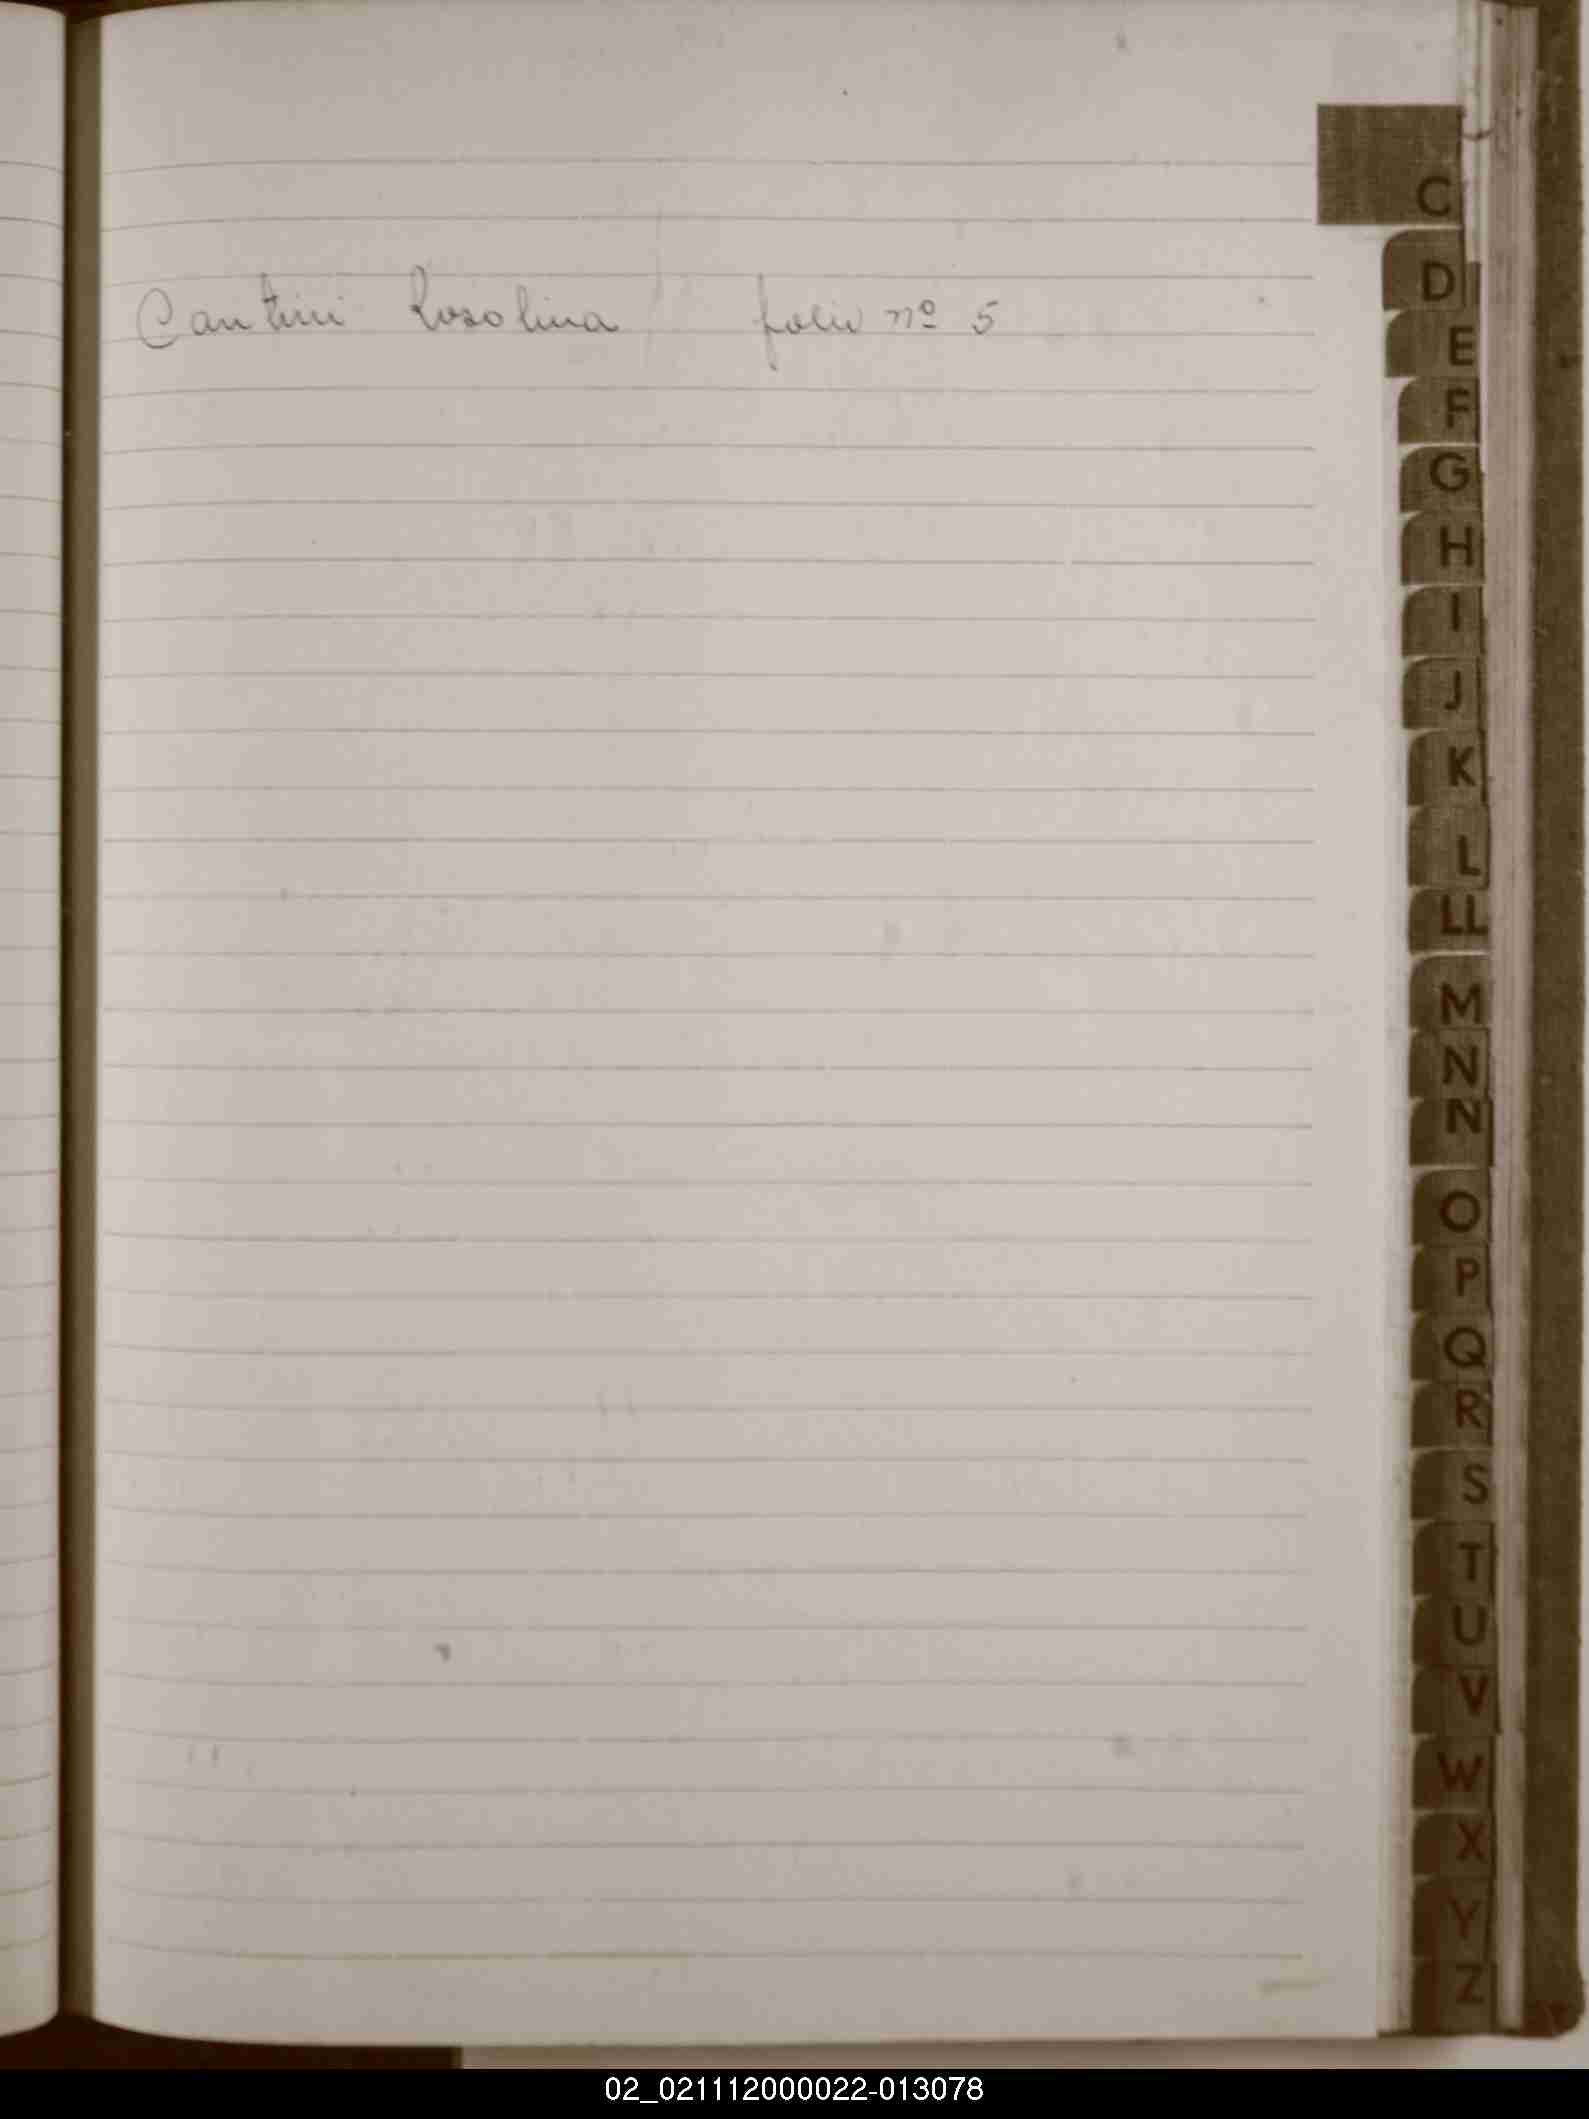 Cantini Rosolina folio nº 5
C
D
E
F
G
H
I
J
K
L
LL
M
N
N
O
P
Q
R
S
T
U
V
W
X
Y
Z
02_021112000022-013078